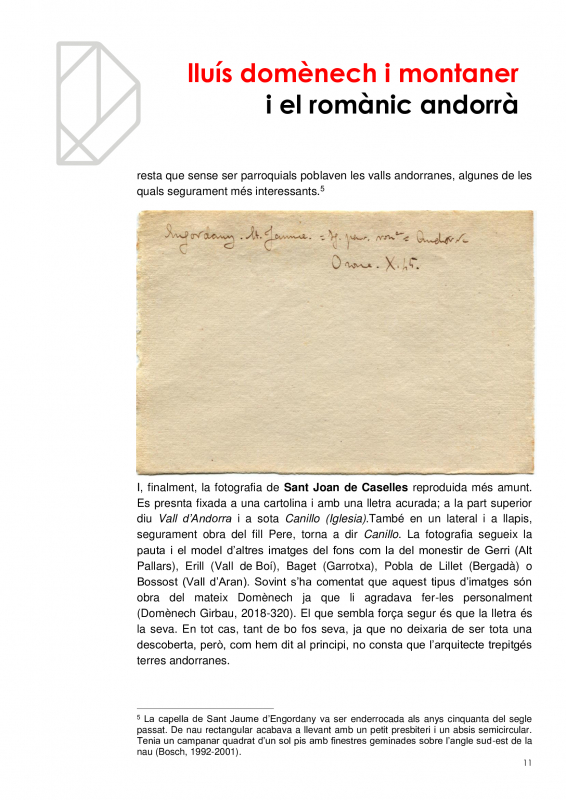 lluís domènech i montaner
i el romànic andorrà
resta que sense ser parroquials poblaven les valls andorranes, algunes de les
quals segurament més interessants.⁵
Engordany. St. Jaume.
X.
I, finalment, la fotografia de Sant Joan de Caselles reproduida més amunt.
Es presnta fixada a una cartolina i amb una lletra acurada; a la part superior
diu Vall d’Andorra i a sota Canillo (Iglesia).També en un lateral i a llapis,
segurament obra del fill Pere, torna a dir Canillo. La fotografia segueix la
pauta i el model d’altres imatges del fons com la del monestir de Gerri (Alt
Pallars), Erill (Vall de Boí), Baget (Garrotxa), Pobla de Lillet (Bergadà) o
Bossost (Vall d’Aran). Sovint s’ha comentat que aquest tipus d’imatges són
obra del mateix Domènech ja que li agradava fer-les personalment
(Domènech Girbau, 2018-320). El que sembla força segur és que la lletra és
la seva. En tot cas, tant de bo fos seva, ja que no deixaria de ser tota una
descoberta, però, com hem dit al principi, no consta que l’arquitecte trepitgés
terres andorranes.
⁵ La capella de Sant Jaume d’Engordany va ser enderrocada als anys cinquanta del segle
passat. De nau rectangular acabava a llevant amb un petit presbiteri i un absis semicircular.
Tenia un campanar quadrat d’un sol pis amb finestres geminades sobre l’angle sud-est de la
nau (Bosch, 1992-2001).
11